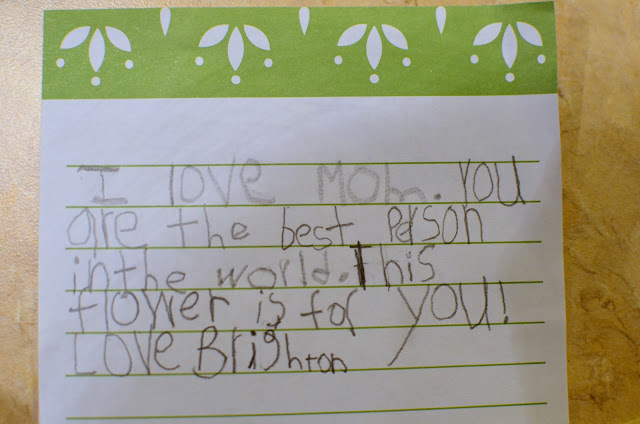 I love Mom. You
are the best Person
in the world. This
flower is for you!
Love Brighton